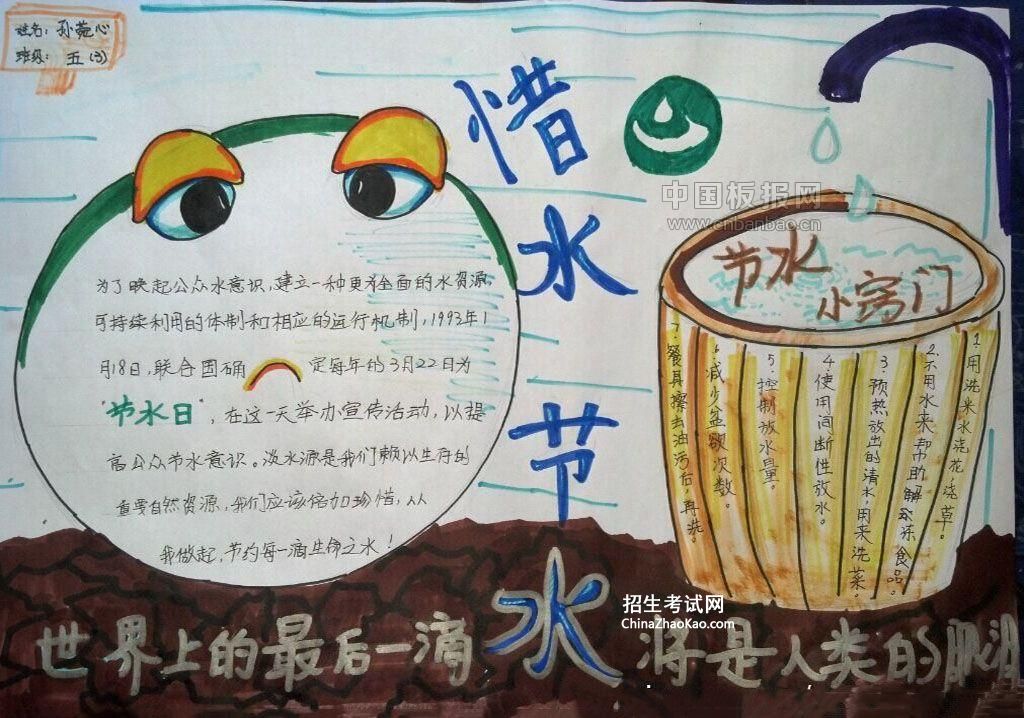 姓名：孙菀心
班级：五(3)
惜水节水
中国板报网
www.cnbanbao.cn
为了唤起公众水意识，建立一种更为全面的水资源
可持续利用的体制和相应的运行机制，1992年1
月18日，联合国确定每年的3月22日为
"节水日"，在这一天举办宣传活动，以提
高公众节水意识。淡水源是我们赖以生存的
重要自然资源，我们应该倍加珍惜，从
我做起，节约每一滴生命之水！
节水
小窍门
1.用洗米水浇花、浇草。
2.不用水来帮助解冻食品。
3.预热放出的清水，用来洗菜。
4.使用间断性放水。
5.控制放水量。
6.减少盆欲次数。
7.餐具擦去油污后，再洗。
招生考试网
ChinaZhaoKao.com
世界上的最后一滴水将是人类的眼泪